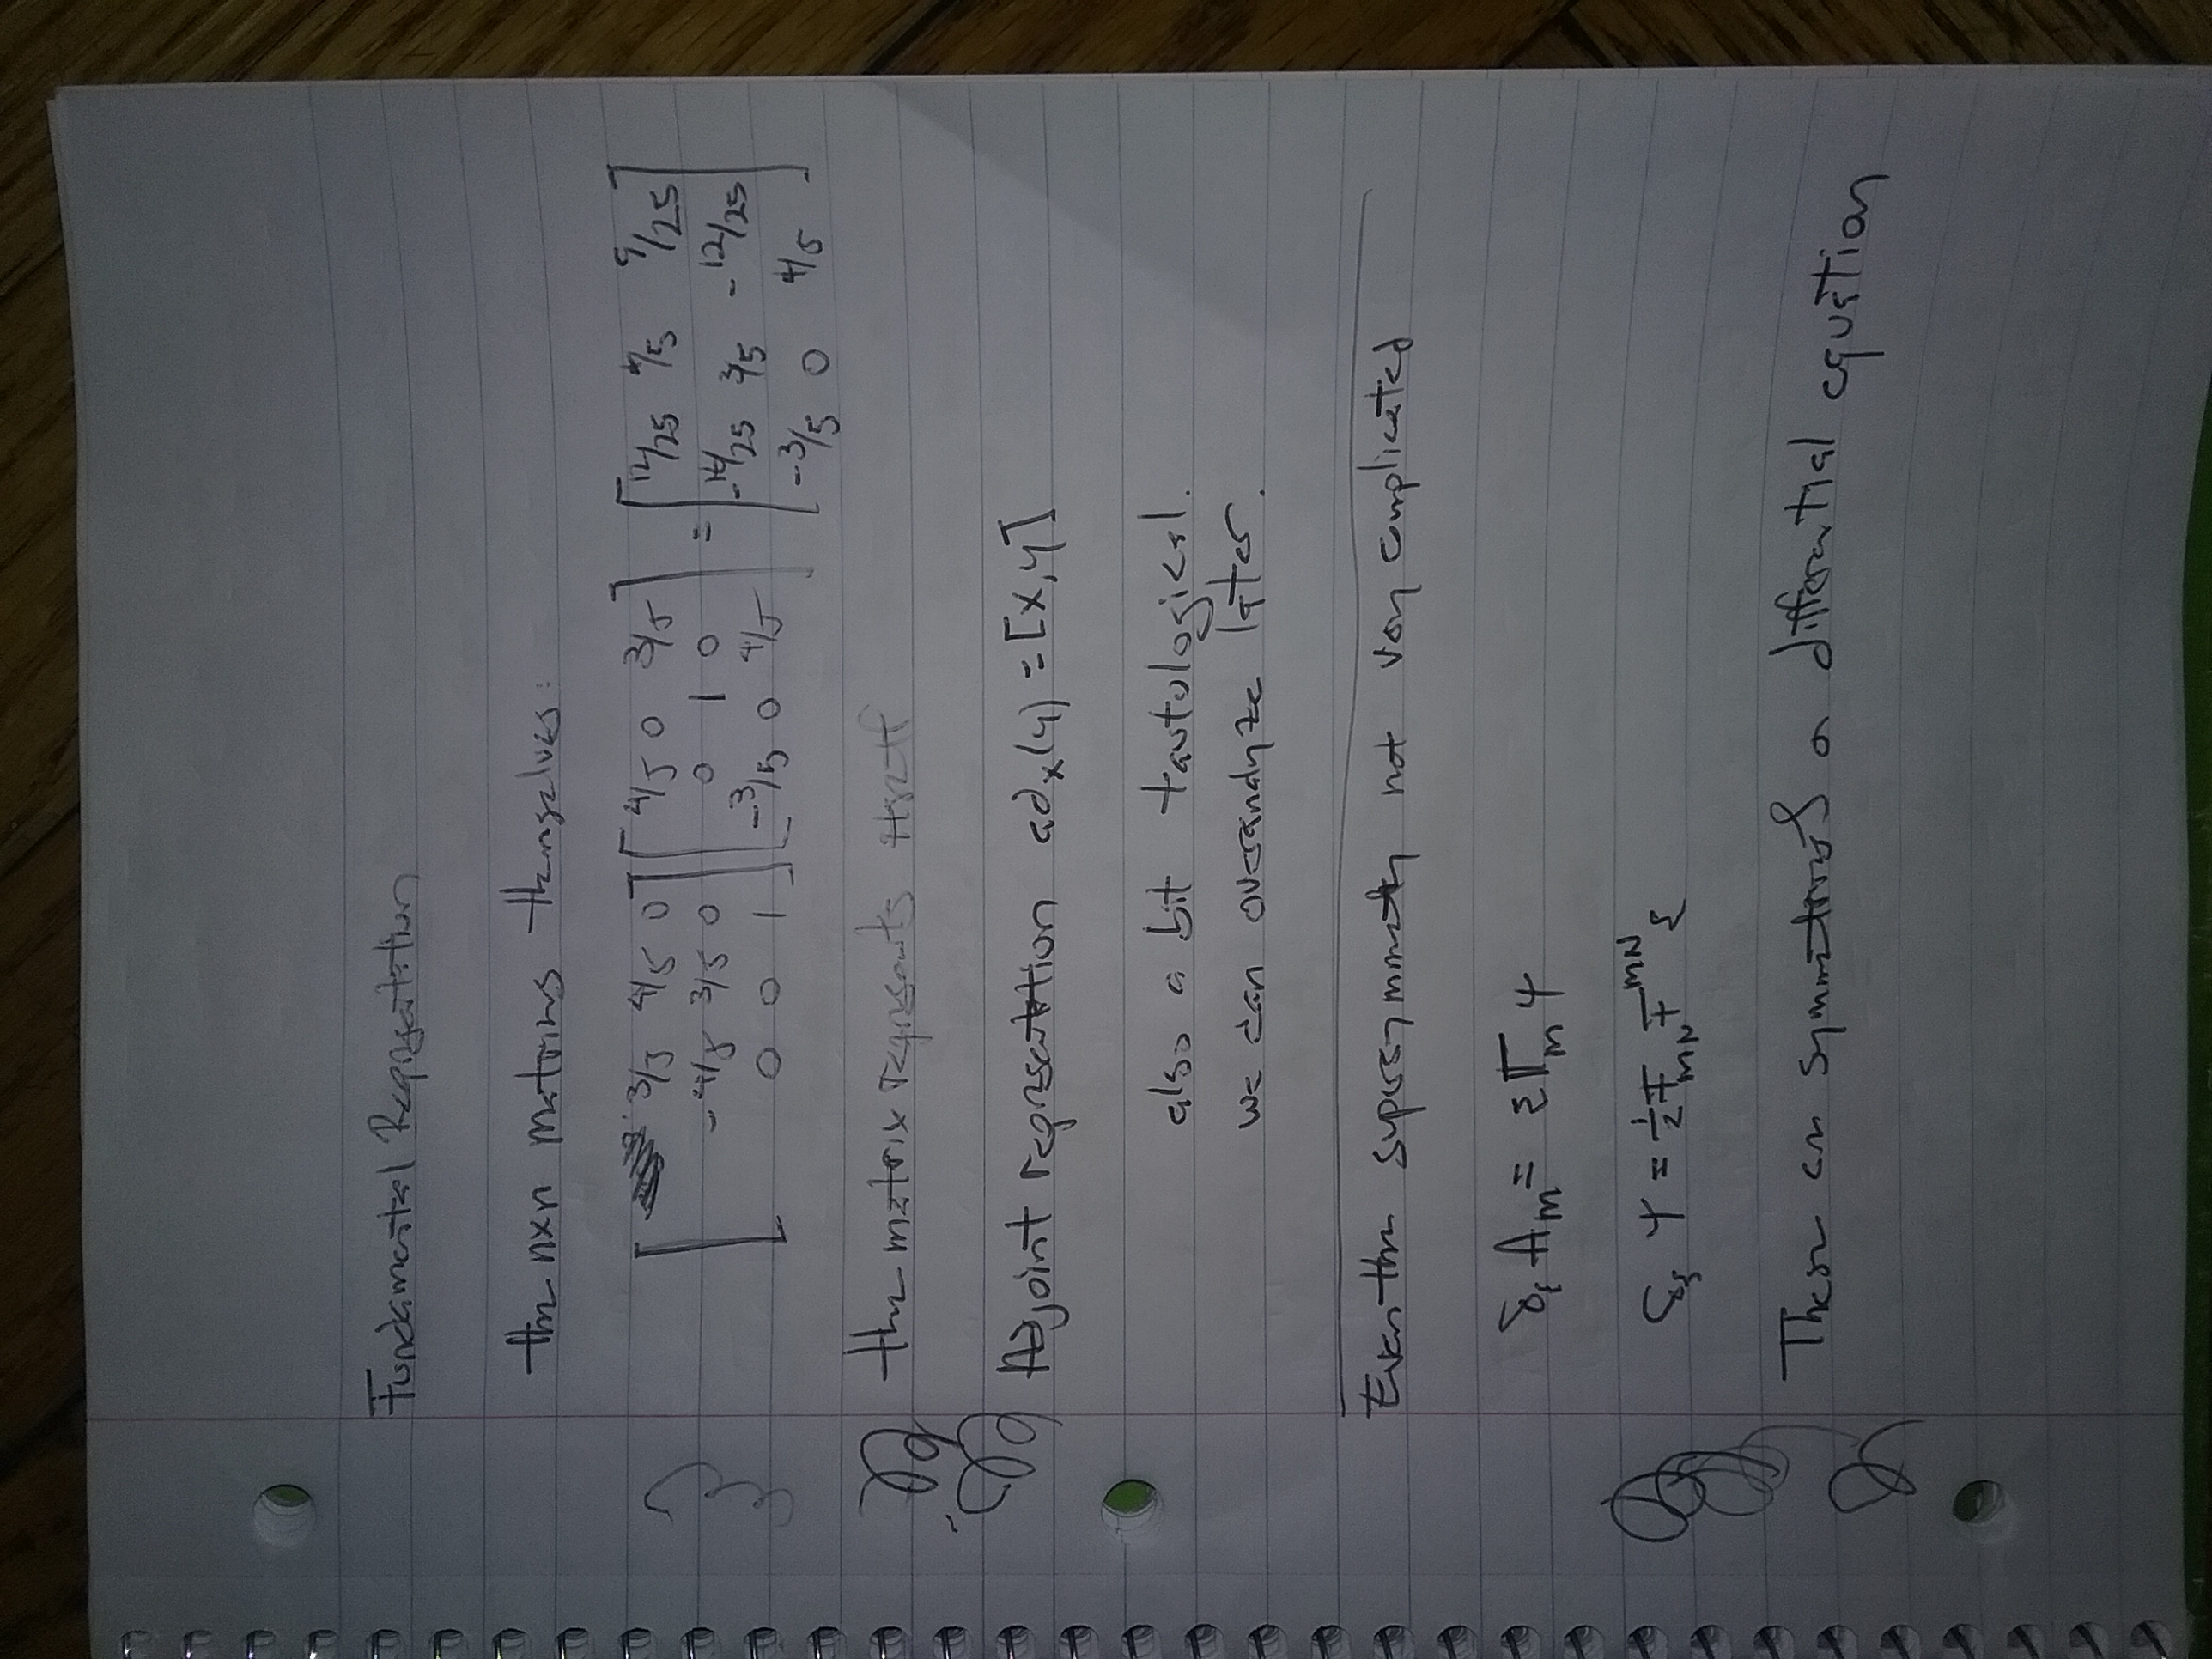 Fundamental Representation
the nxn matrices themselves:
[ 3/5 4/5 0 ] [ 4/5 0 3/5 ] = [ 12/25 4/5 9/25 ]
-4/5 3/5 0 0 1 0 -14/25 3/5 -12/25
0 0 1 -3/5 0 4/5 -3/5 0 4/5
the matrix represents itself
Adjoint representation ad_x(y) = [x,y]
also a bit tautological.
we can overanalyze later.
Even the supersymmetry not very complicated
δ_ε A_m = ε Γ_m ψ
δ_ε ψ = 1/2 F_MN Γ^MN ε
These are symmetries of a differential equation